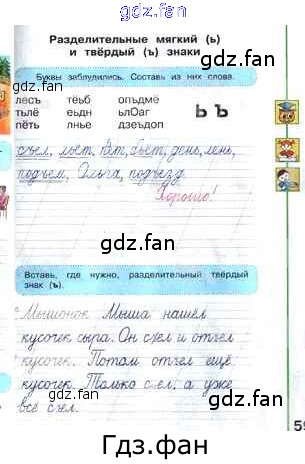 gdz.fan
Разделительные мягкий (ь)
и твёрдый (ъ) знаки
Буквы заблудились. Составь из них слова.
лесъ тёьб опъдмё
тълё еьдн ьлОаг
пёть лнье дзеъдоп
Ь Ъ
съел, льёт, бьёт, день, лень,
подъём, Ольга, подъезд.
Хорошо!
gdz.fan
gdz.fan
Вставь, где нужно, разделительный твёрдый
знак (ъ).
Мышонок Мыша нашёл
кусочек сыра. Он с.ел и отъел
кусочек. Потом отъел ещё
кусочек. Только с.ел, а уже
всё съел.
gdz.fan
gdz.fan
Гдз.фан